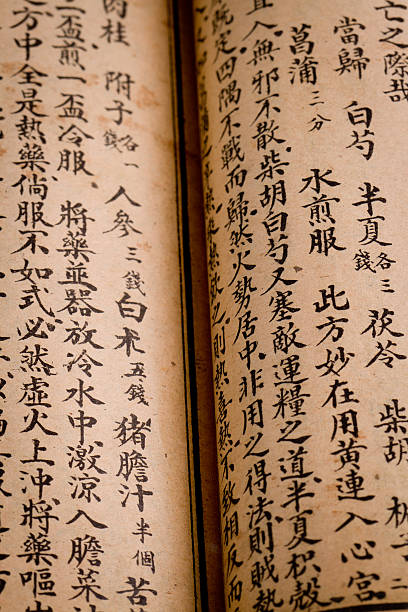 亡之際哉
當歸 白芍 半夏各三錢 茯苓 柴胡
菖蒲三分 水煎服 此方妙在用黃連入心宮
直入無邪不散柴胡白芍又塞敵運糧之道半夏枳殼
既定四隅不戰而歸然火勢居中非用之得法則賊勢
則熱喜熱不致相反而
肉桂 附子各一錢 人參三錢 白朮五錢 豬膽汁半個 苦
二盃煎一盃冷服 將藥並器放冷水中激涼入膽菜汁
之方中全是熱藥倘服不如式必然虛火上沖將藥嘔出